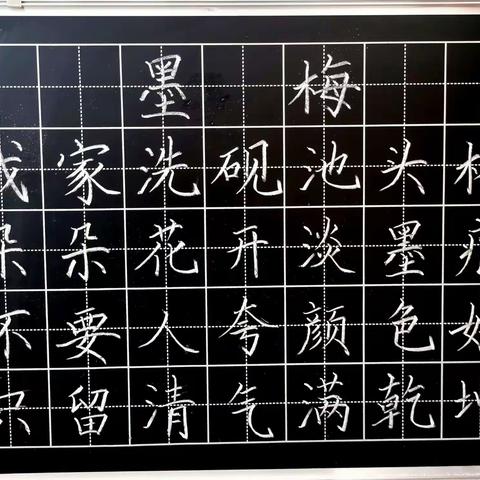 墨梅
我家洗砚池头
朵朵花开淡墨
不要人夸颜色好
只留清气满乾